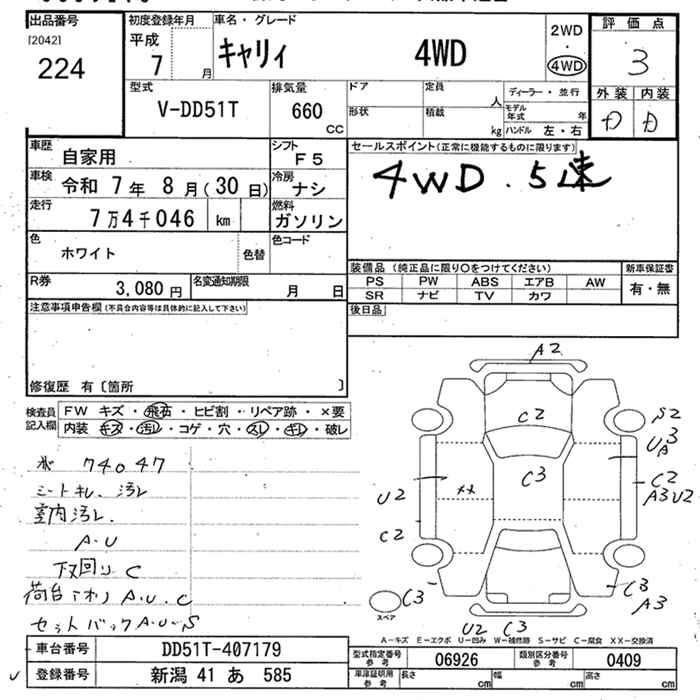 出品番号
[2042]
224
初度登録年月
平成
7 月
車名・グレード
キャリィ 4WD
2WD
・
4WD
評価点
3
外装 内装
D D
型式
V-DD51T
排気量
660
CC
ドア
形状
定員
人
積載
kg
ディーラー・並行
モデル年式 年
ハンドル 左・右
車歴
自家用
シフト
F5
車検
令和 7年 8月(30日)
冷房
ナシ
走行
7万4千046 km
燃料
ガソリン
色
ホワイト
色替
色コード
R券
3,080 円
名変通知期限
月 日
セールスポイント(正常に機能するものに限ります)
4WD . 5速
装備品 (純正品に限り○をつけてください)
PS PW ABS エアB AW
SR ナビ TV カワ
新車保証書
有・無
後日品
注意事項申告欄 (不具合内容等は具体的に記入して下さい)
修復歴 有〔箇所 〕
検査員記入欄
FW キズ・飛石・ヒビ割・リペア跡・×要
内装 キズ・汚レ・コゲ・穴・スレ・キレ・破レ
74047
シートキレ、汚レ
室内汚レ.
A・U
下回り C
荷台 A.U.C
セットバックA・U・S
A2
C2
C3
S2
U3
A
C2
A3U2
U2
××
C2
C3
スペア
C3
A3
U2 C3
A-キズ E-エクボ U-凹み W-補修跡 S-サビ C-腐食 XX-交換済
車台番号
DD51T-407179
登録番号
新潟 41 あ 585
型式指定番号
参考
06926
類別区分番号
参考
0409
車庫証明用
参考
長さ cm
幅 cm
高さ cm